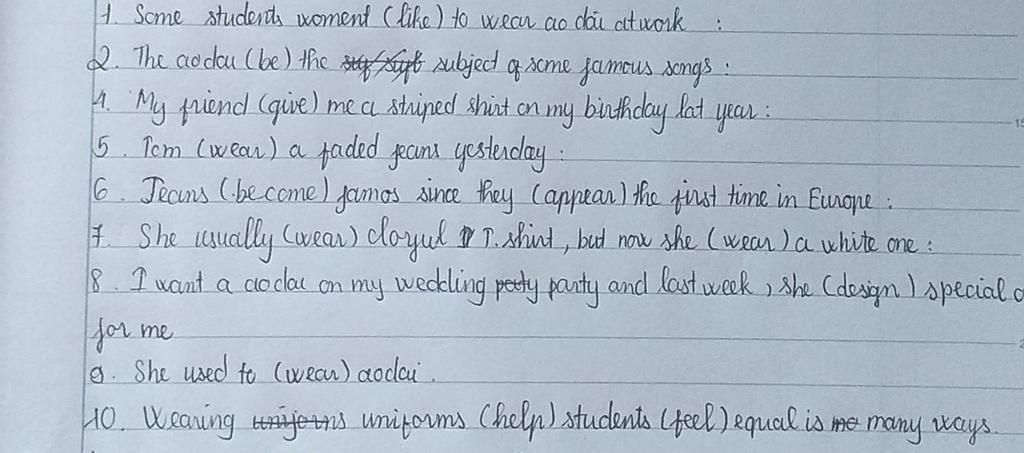 1. Some students woment (like) to wear ao dai at work :
2. The aodai (be) the subject of some famous songs :
4. My friend (give) me a striped shirt on my birthday lat year :
5. Tom (wear) a faded jeans yesterday :
6. Jeans (become) famos since they (appear) the first time in Europe :
7. She usually (wear) cloyul T.shirt, but now she (wear) a white one :
8. I want a aodai on my wedding party and last week, she (design) special
for me
9. She used to (wear) aodai.
10. Wearing uniforms (help) students (feel) equal is many ways.